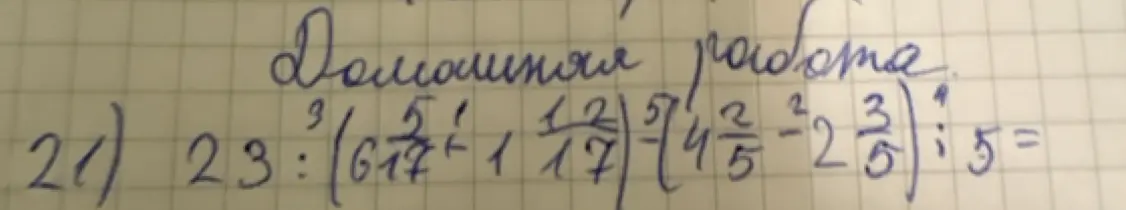 Домашняя работа.
21) 23 :³ (6 5/17 +¹ 1 12/17) -⁵ (4 2/5 -² 2 3/5) :⁴ 5 =